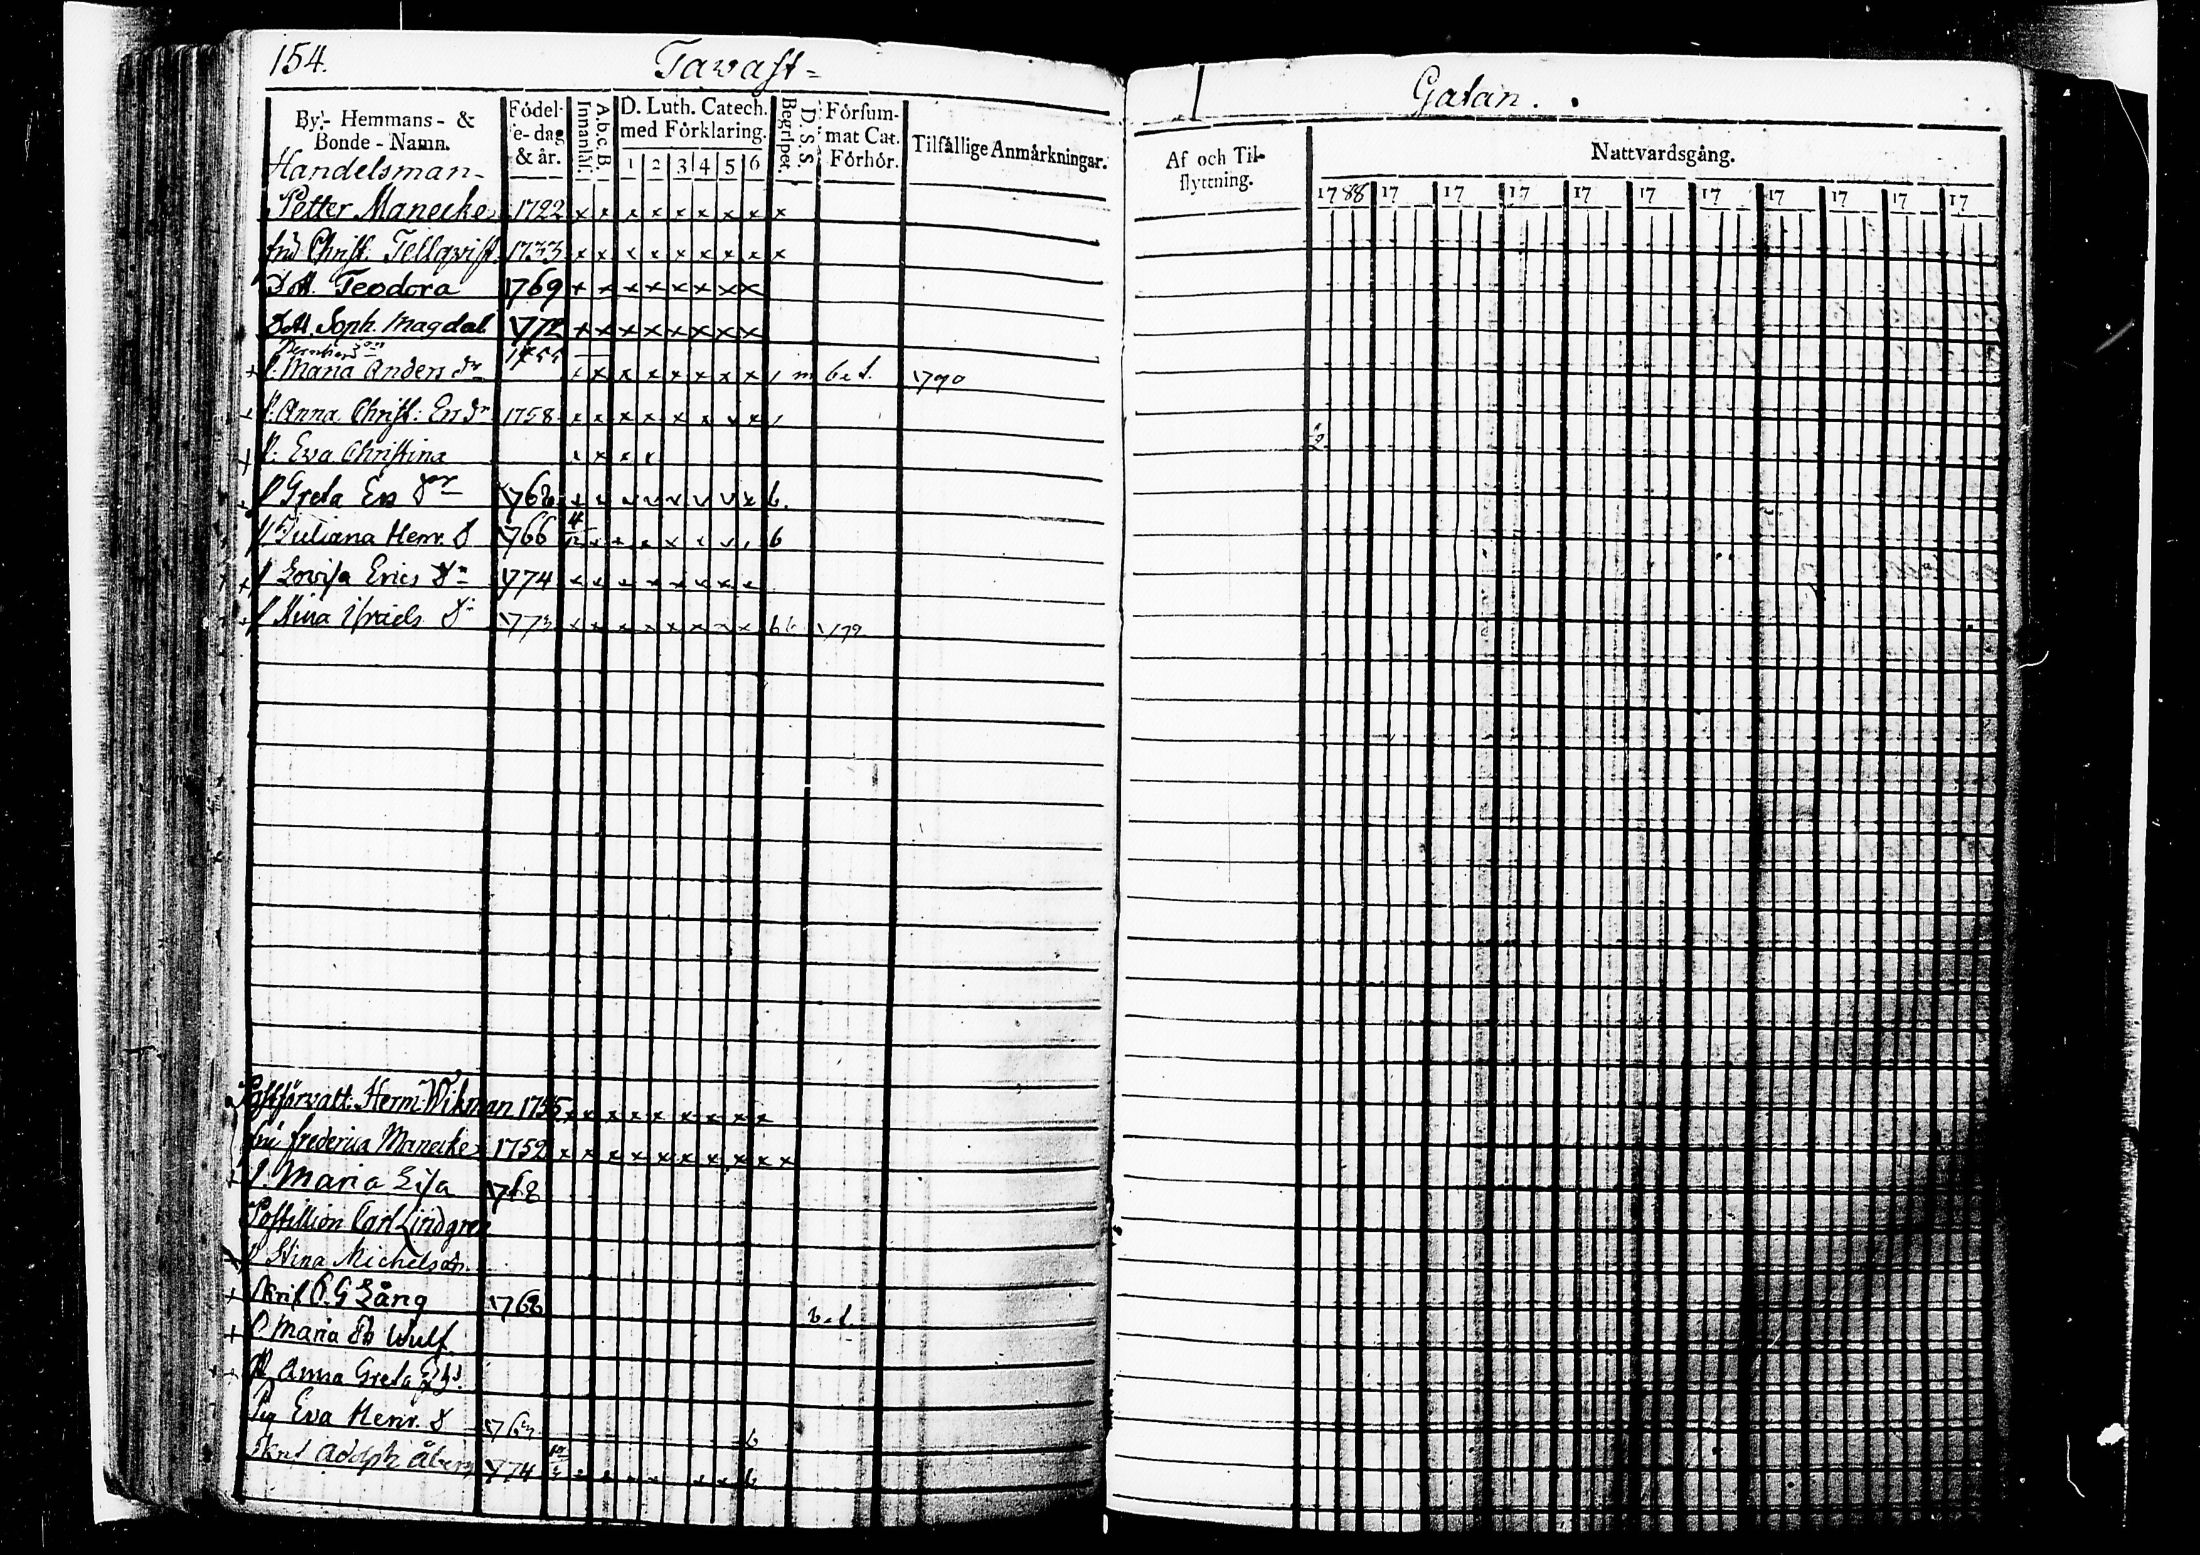 154.
Tavast=
Gatan.
By- Hemmans- & Bonde-Namn.
Födelse-dag & år.
Innanläs.
A.b.c.B.
D. Luth. Catech. med Förklaring.
1 2 3 4 5 6
Begripet.
D. S. S.
Försummat Cat. Förhör.
Tilfällige Anmärkningar.
Af och Tilflyttning.
Nattvardsgång.
1788 17 17 17 17 17 17 17 17 17 17
Handelsman-
Petter Manecke 1722 x x x x x x x x x
fru Christ. Tellqvist 1733 x x x x x x x x x
Dott. Teodora 1769 x x x x x x x x
Dott. Soph. Magdal. 1772 x x x x x x x x
P. Maria Anders dr 1755 x x x x x x x bet. 1790
P. Anna Christ: Ers dr 1758 x x x x x x x x
P. Eva Christina x x x x
P Greta Ers dr 176 b.
P Juliana Henr. D 1766 b
P Lovisa Erics Dr 1774 x x x x x x x x
P Stina Israels Dr 1773 x x x x x x x x b
Postförvalt. Herm. Wikman 17 5 x x x x x x x x x
fru frederica Manecke 1752 x x x x x x x x x x
P. Maria Lisa 1768
Postillion Carl Lindgren
P Stina Michelsdr.
Skrif. P. G Lång 176
P Maria Wulf.
P. Anna Greta
Pig Eva Henr. D 1763 b
Adolph Åberg 1774 b